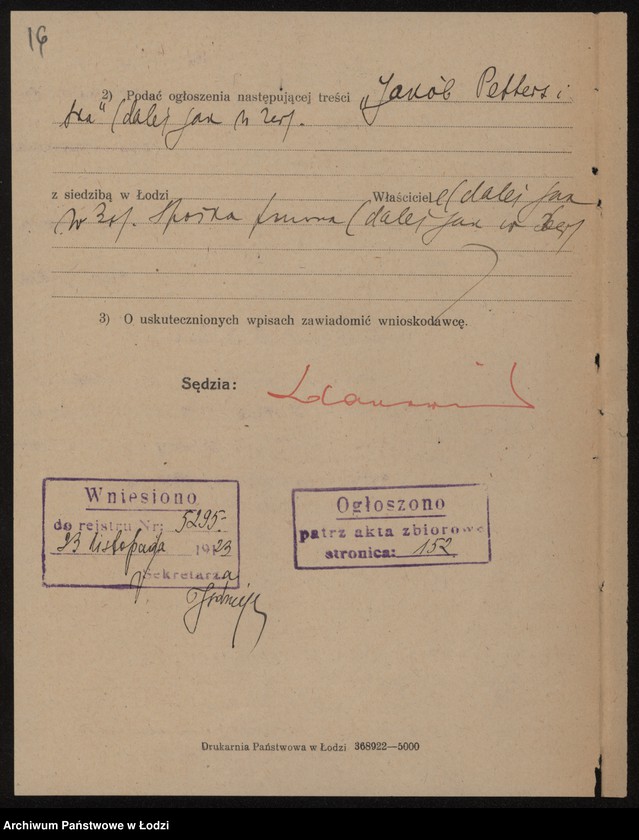 16
2) Podać ogłoszenia następującej treści „Jakób Petters i
ska" (dalej jak w rej.
z siedzibą w Łodzi Właściciele (dalej jak
w rej. Spółka firmowa (dalej jak w rej
3) O uskutecznionych wpisach zawiadomić wnioskodawcę.
Sędzia:
Wniesiono
do rejstru Nr: 5295.
23 listopada 1923
Sekretarz
Ogłoszono
patrz akta zbiorowe
stronica: 152
Drukarnia Państwowa w Łodzi 368922—5000
Archiwum Państwowe w Łodzi